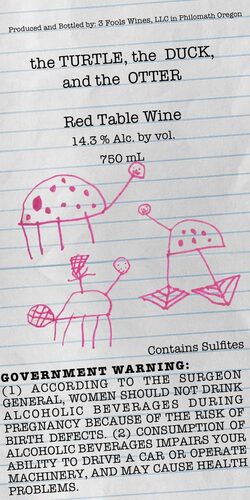 Produced and Bottled by: 3 Fools Wines, LLC in Philomath Oregon
the TURTLE, the DUCK,
and the OTTER
Red Table Wine
14.3 % Alc. by vol.
750 mL
Contains Sulfites
GOVERNMENT WARNING:
(1) ACCORDING TO THE SURGEON
GENERAL, WOMEN SHOULD NOT DRINK
ALCOHOLIC BEVERAGES DURING
PREGNANCY BECAUSE OF THE RISK OF
BIRTH DEFECTS. (2) CONSUMPTION OF
ALCOHOLIC BEVERAGES IMPAIRS YOUR
ABILITY TO DRIVE A CAR OR OPERATE
MACHINERY, AND MAY CAUSE HEALTH
PROBLEMS.